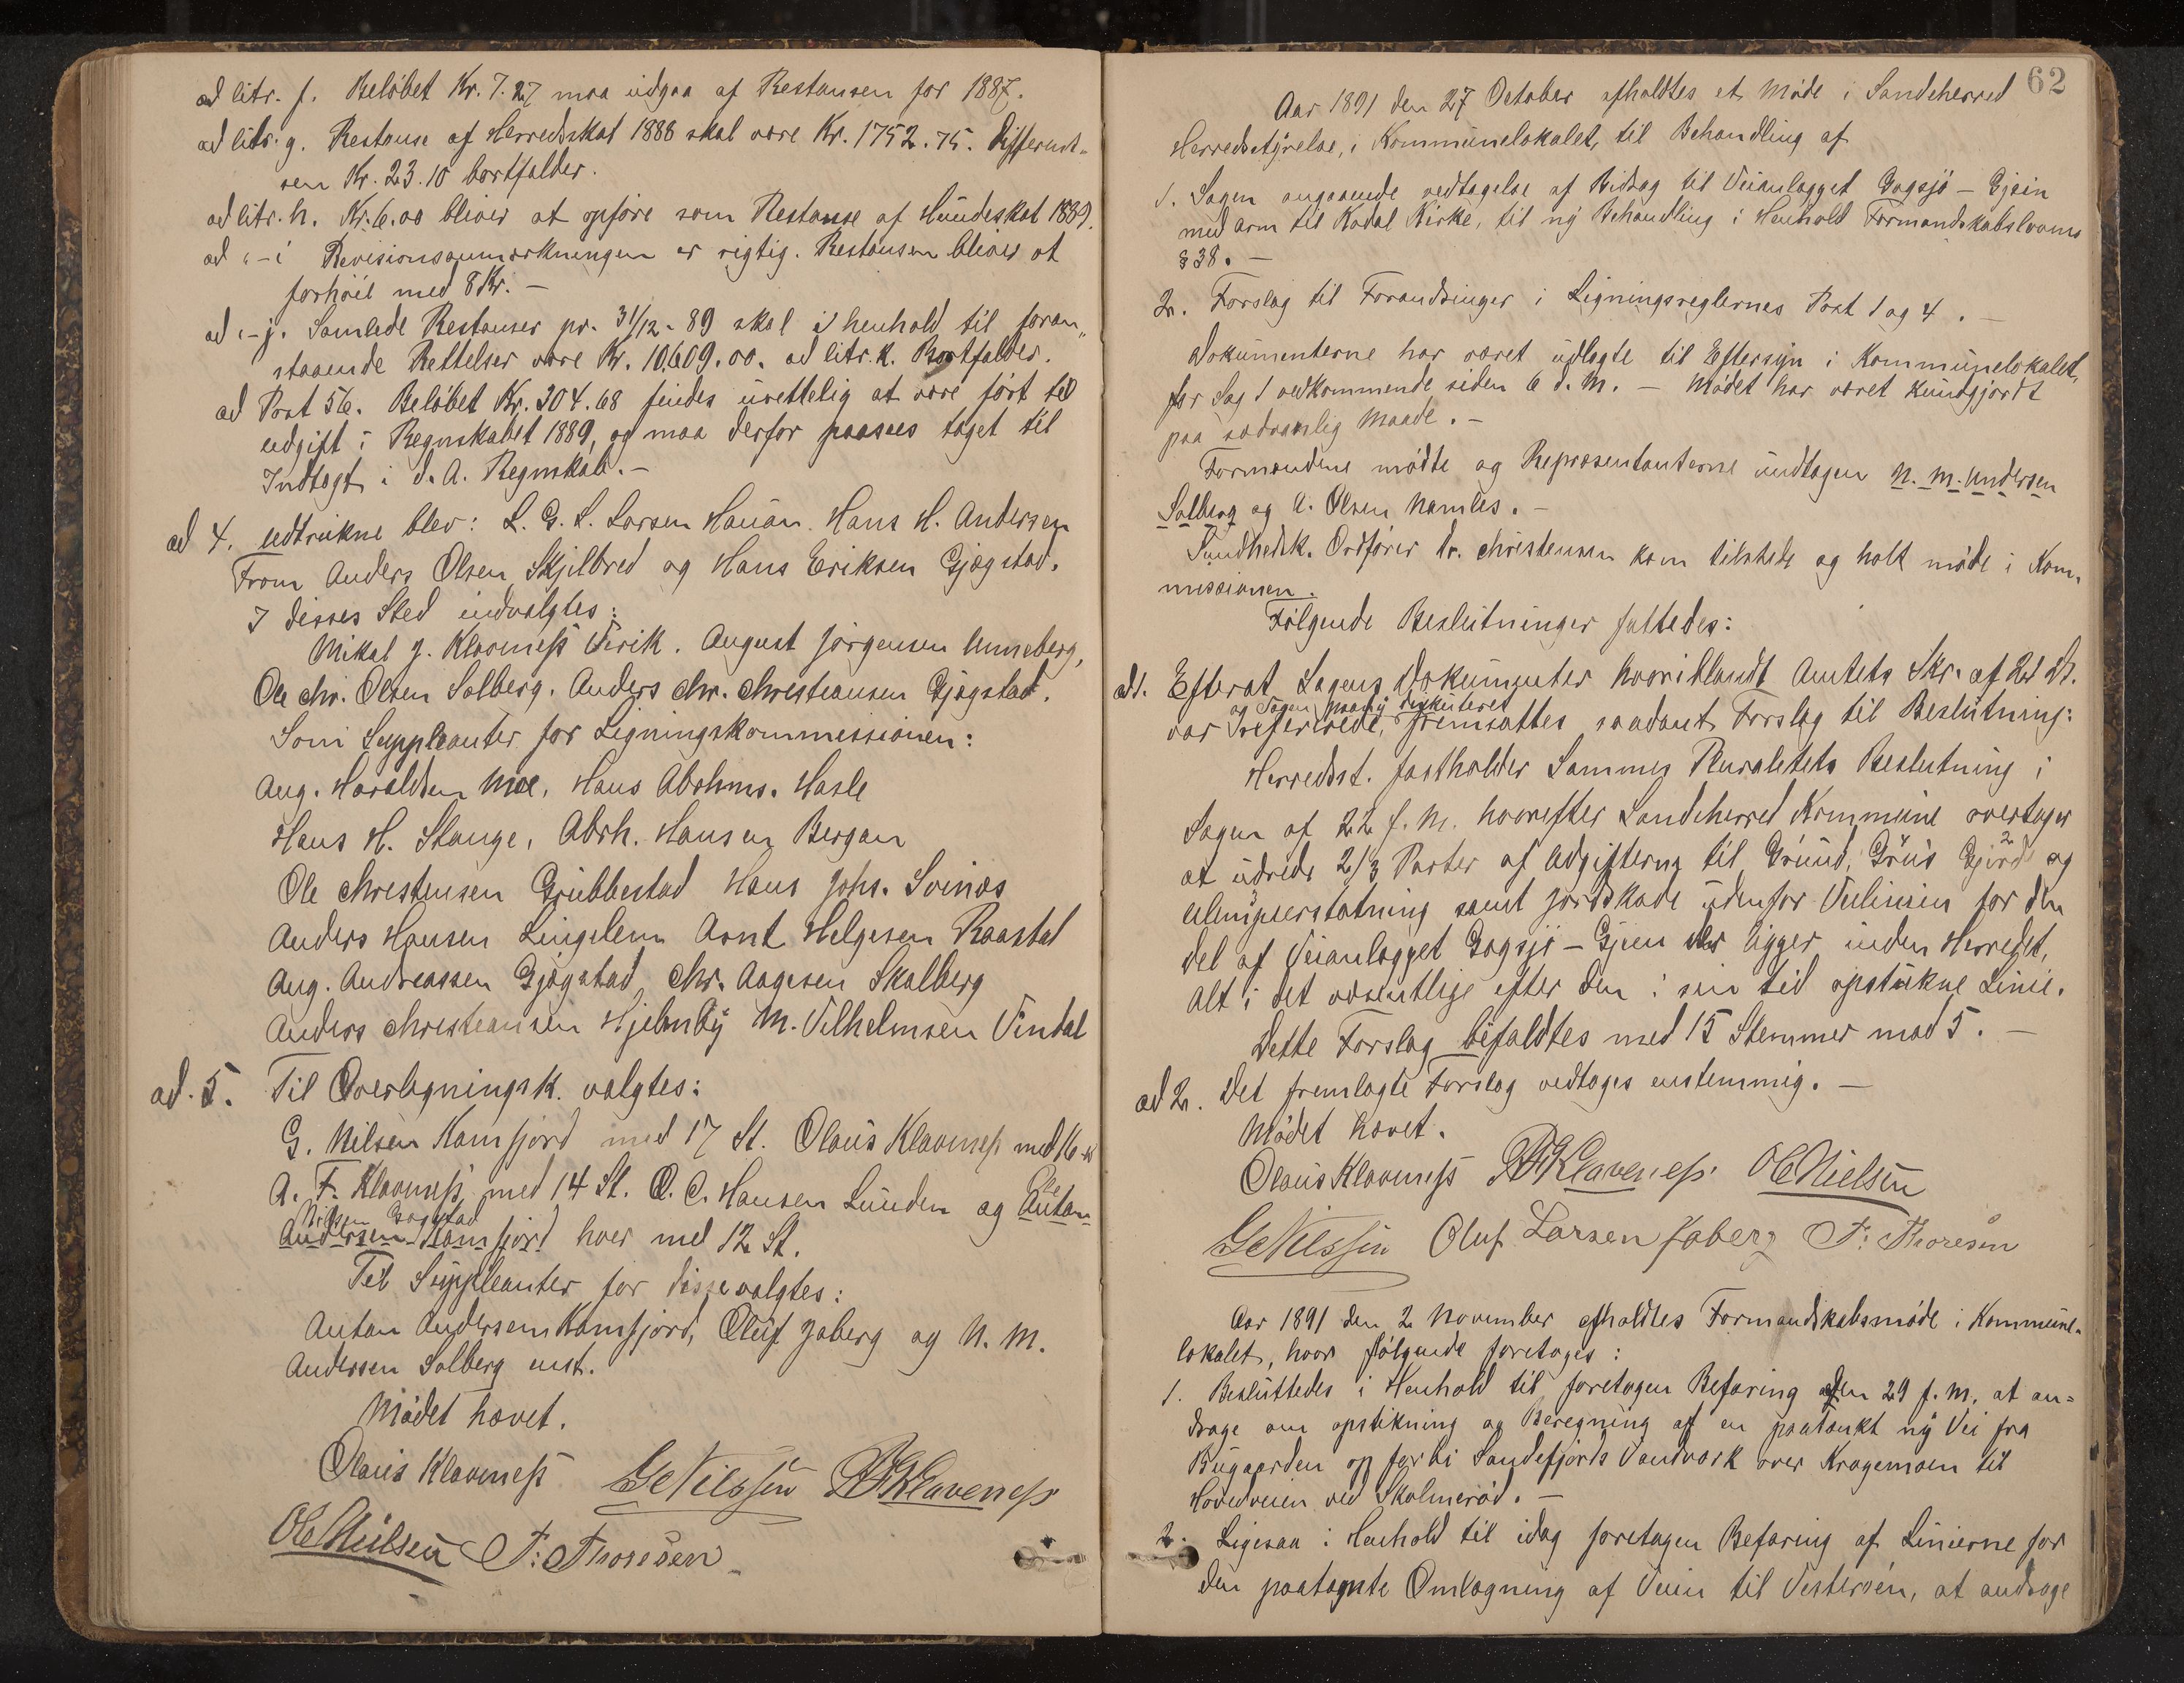 ad litr. f. Beløbet Kr. 7.27 maa udgaa af Restansen for 1887.
ad litr. g. Restanse af Herredsskat 1888 skal være Kr. 1752.75. Different-
sen Kr. 23.10 bortfalder.
ad litr. h. Kr. 6.00 bliver at opføre som Restanse af Hundeskat 1889.
ad "- i Revisionsanmærkningen er rigtig. Restansen bliver at
forhøie med 8 Kr. -
ad "- j. Samlede Restanser pr. 31/12-89 skal i henhold til foran-
staaende Rettelser være Kr. 10,609.00. ad litr. k. Bortfalder.
ad Post 56. Beløbet Kr. 304.68 findes urettelig at være ført til
udgift i Regnskabet 1889, og maa derfor paasees taget til
Indtægt i d. A. Regnskab. -
ad 4. Udtrukne blev: L. G. L. Larsen Hauan. Hans H. Andersen
From Anders Olsen Skjelbred og Hans Eriksen Gjøgstad.
I disses Sted indvalgtes:
Mikal J. Klavneſs Virik. August Jørgensen Unneberg,
Ole Chr. Olsen Solberg. Anders Chr. Christiansen Gjøgstad.
Som Suppleanter for Ligningskommissionen:
Aug. Haraldsen Moe, Hans Abrhms. Hasle
Hans H. Stange, Abrh. Hansen Bergan
Ole Christensen Grubbestad Hans Johs. Svinæs
Anders Hansen Lingelem Arnt Helgesen Raastad
Aug. Andreassen Gjøgstad, Chr. Aagesen Skalberg
Anders Christiansen Hjelmby M. Vilhelmsen Vindal
ad. 5. Til Overligningsk. valgtes:
G. Nilsen Kamfjord med 17 St. Olaus Klavneſs med 16 st
A. F. Klavneſs med 14 St. O. C. Hansen Lunden og Ole Anton
Nilsen Gogstad
Andersen Kamfjord hver med 12 St.
Til Suppleanter for disse valgtes:
Anton Andersen Kamfjord, Oluf Jaberg og N. M.
Andersen Solberg enst.
Mødet hævet.
Olaus Klavneſs G. Nilssen A F Klaveneſs
O C Nielsen F. Thoresen
62
Aar 1891 den 27 October afholdtes et Møde i Sandeherred
Herredsstyrelse, i Kommunelokalet, til Behandling af
1. Sagen angaaende vedtagelse af Bidrag til Veianlægget Gogsjø - Gjein
med arm til Kodal Kirke, til ny Behandling i Henhold Formandskabslovens
§ 38. -
2. Forslag til Forandringer i Ligningsreglernes Post 1 og 4. -
Dokumenterne har været udlagte til Eftersyn i Kommunelokalet,
for Sag 1 vedkommende siden 6 d. M. - Mødet har været kundgjordt
paa sædvanlig Maade. -
Formændene mødte og Repræsentanterne undtagen N. M. Andersen
Solberg og A. Olsen Namløs. -
Sundhedsk. Ordfører Dr. Christensen kom tilstede og holt møde i Kom-
missionen.
Følgende Beslutninger fattedes:
ad 1. Efterat Sagens Dokumenter hvoriblandt Amtets Skr. af 2d ds.
og Sagen paany diskuteret
var refererede, fremsattes saadant Forslag til Beslutning:
Herredsst. fastholder Sammes Pluralitets Beslutning i
Sagen af 22 f. M. hvorefter Sandeherred Kommune overtager
at udrede 2/3 Parter af Udgifterne til Grund, Grus Gjerd og
Ulempeerstatning samt Jordskade udenfor Veilinien for den
del af Veianlægget Gogsjø - Gjein der ligger inden Herredet,
Alt i det væsentlige efter den i sin tid opstukne Linie.
Dette Forslag bifaldtes med 15 Stemmer mod 5. -
ad 2. Det fremlagte Forslag vedtoges enstemmig. -
Mødet hævet.
Olaus Klavneſs A F Klaveneſs O C Nielsen
G. Nilssen Oluf Larsen Jaberg F. Thoresen
Aar 1891 den 2 November afholdtes Formandskabsmøde i Kommune-
lokalet, hvor følgende foretoges:
1. Besluttedes i Henhold til foretagen Befaring den 29 f. M. at an-
drage om opstikning og Beregning af en paatænkt ny Vei fra
Bugaarden op forbi Sandefjords Vandværk over Kragemoen til
Hovedveien ved Skolmerød. -
2. Ligesaa i Henhold til idag foretagen Befaring af Linierne for
den paatænkte Omlægning af Veien til Vesterøen, at andrage